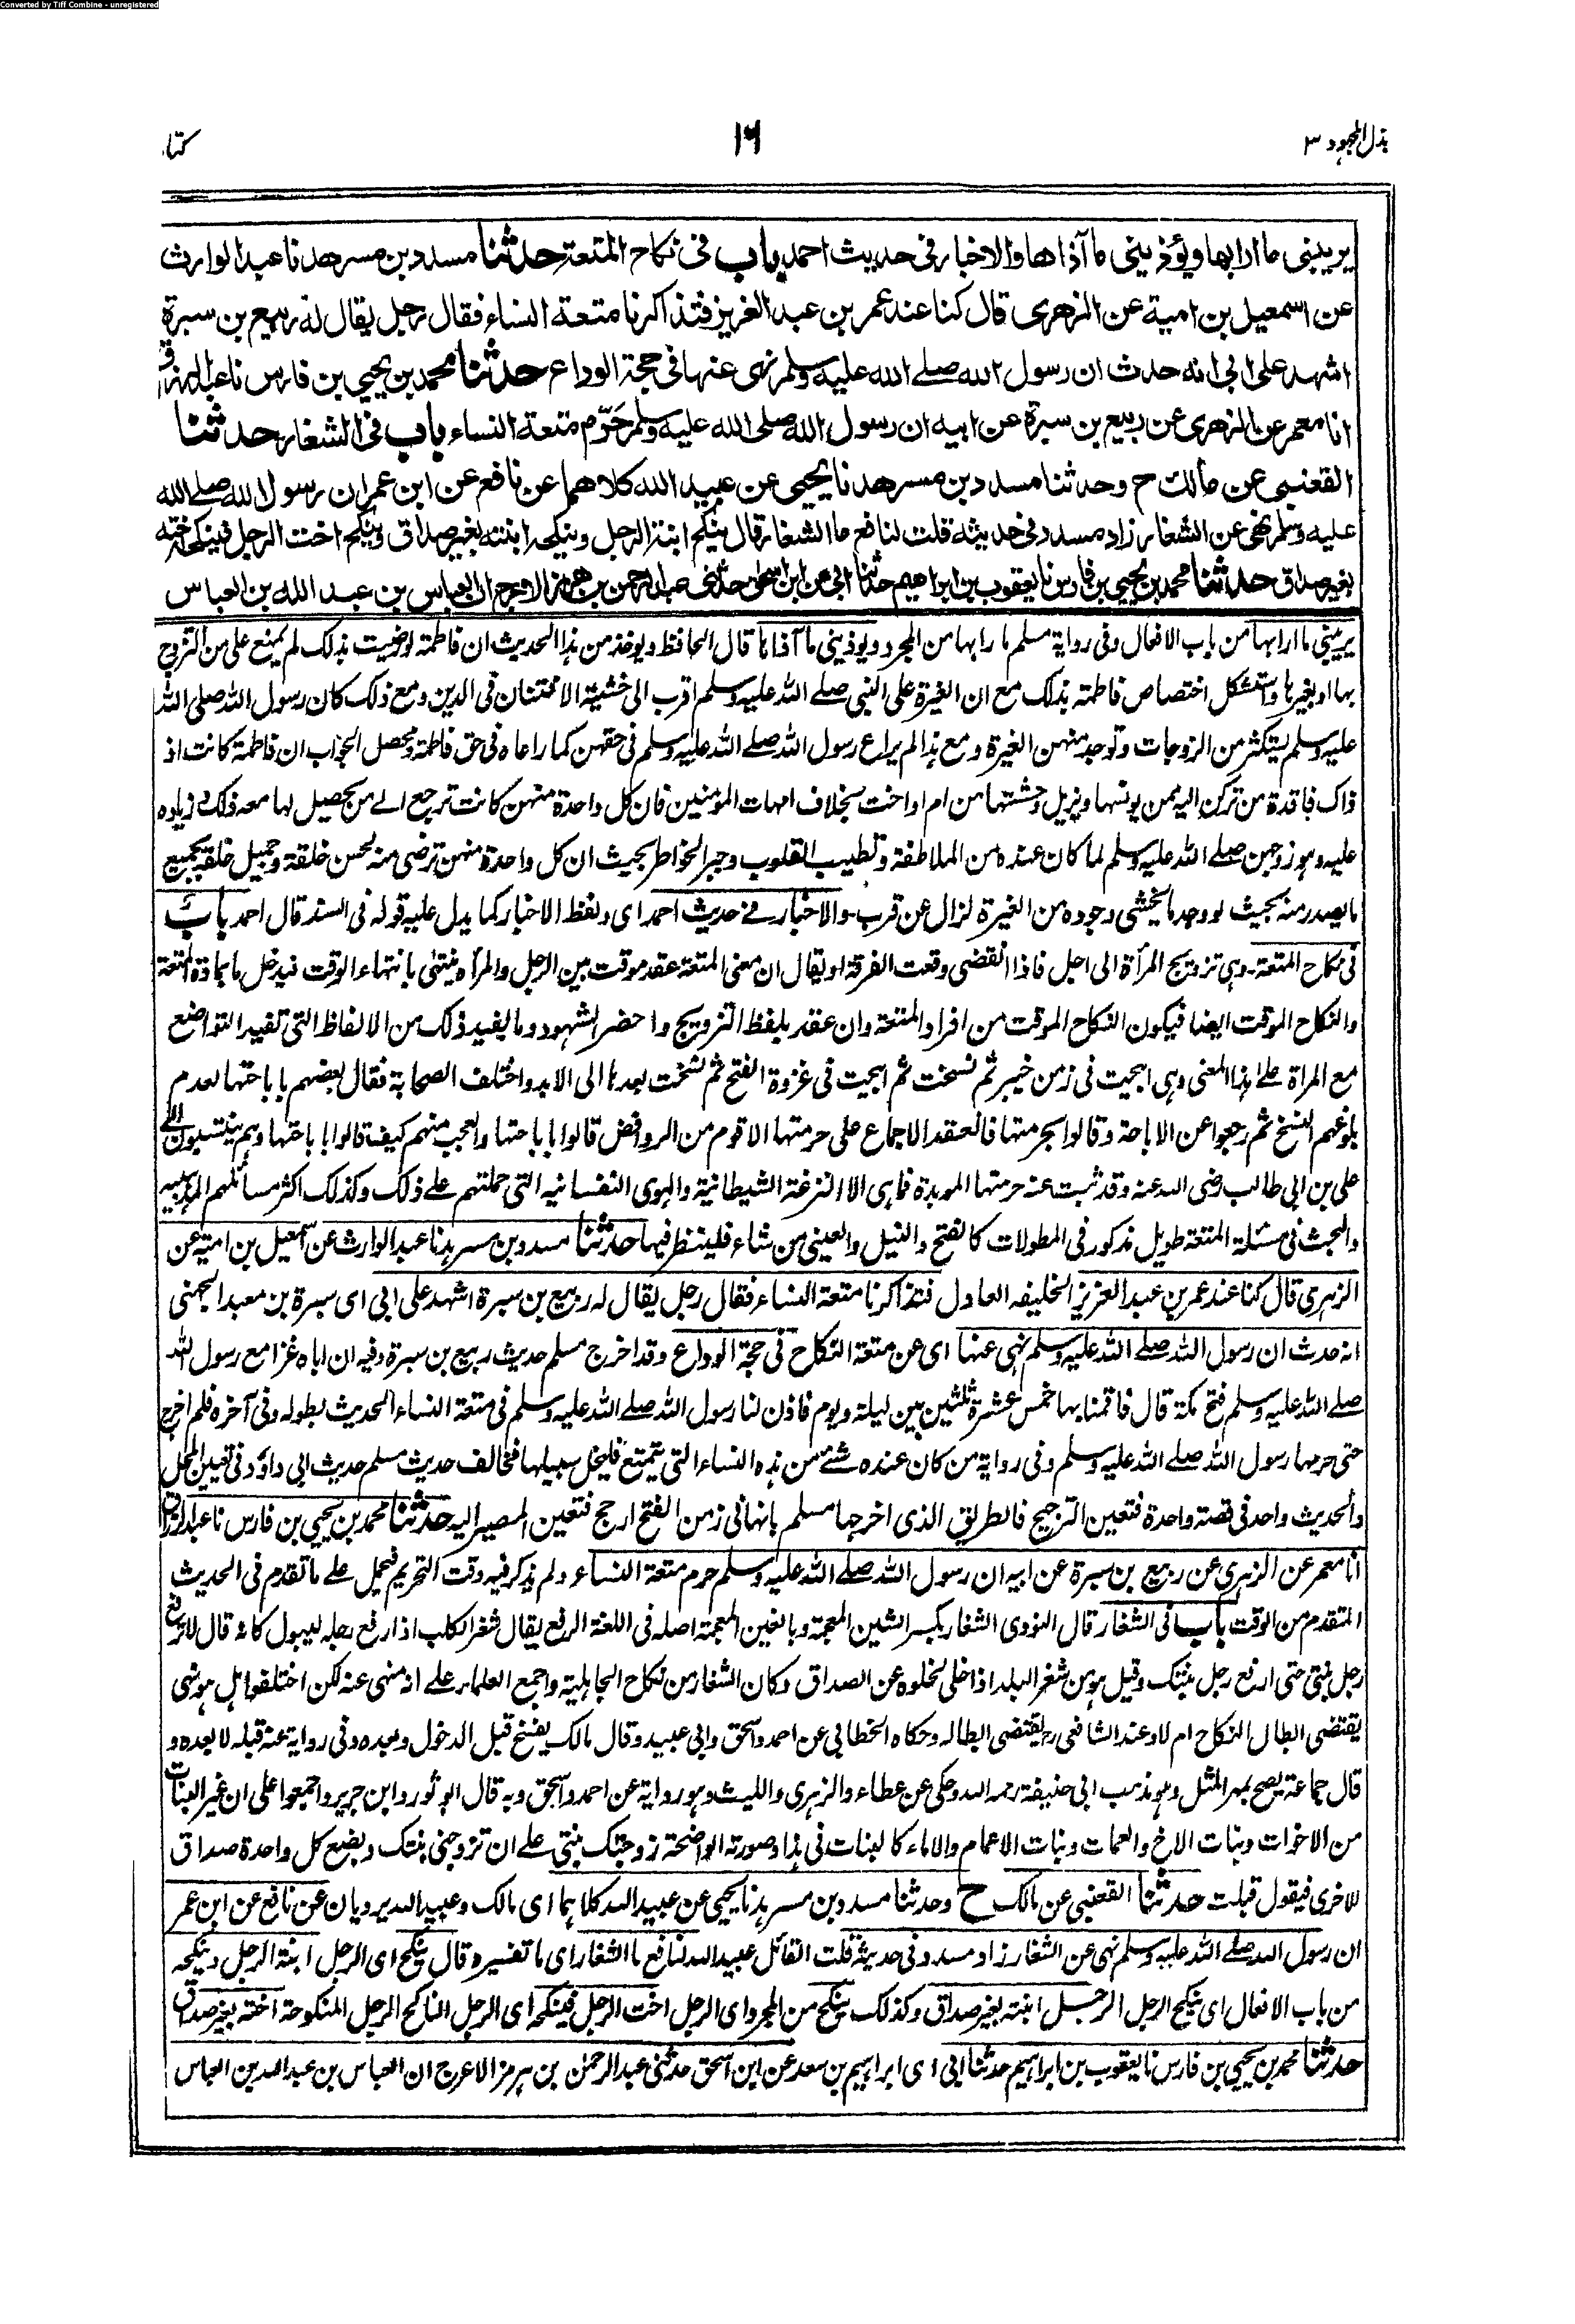 Converted by Tiff Combine - unregistered
بذل المجهود ٣
١٦
كتا
يريبنى ما ارابها ويؤذينى ما آذاها والاخبار فى حديث احمد باب فى نكاح المتعة حدثنا مسدد بن مسرهد نا عبد الوارث
عن اسمعيل بن امية عن الزهرى قال كنا عند عمر بن عبد العزيز فتذاكرنا متعة النساء فقال رجل يقال له ربيع بن سبرة
اشهد على ابى انه حدث ان رسول الله صلے الله عليه وسلم نهى عنها فى حجة الوداع حدثنا محمد بن يحيى بن فارس نا عبد الرزاق
انا معمر عن الزهرى عن ربيع بن سبرة عن ابيه ان رسول الله صلى الله عليه وسلم حَرّم متعة النساء باب فى الشغار حدثنا
القعنبى عن مالك ح وحدثنا مسدد بن مسرهد نا يحيى عن عبيد الله كلاهما عن نافع عن ابن عمر ان رسول الله صلے الله
عليه وسلم نهى عن الشغار زاد مسدد فى حديثه قلت لنافع ما الشغار قال ينكح ابنة الرجل وينكحه ابنته بغير صداق وينكح اخت الرجل فينكحه اخته
بغير صداق حدثنا محمد بن يحيى بن فارس نا يعقوب بن ابراهيم حدثنا ابى عن ابن اسحق حدثنى عبد الرحمن بن هرمز الاعرج ان العباس بن عبد الله بن العباس
يريبنى ما ارابها من باب الافعال وفى رواية مسلم ما رابها من المجرد ويوذينى ما آذاها قال الحافظ ويوخذ من هذا الحديث ان فاطمة لو رضيت بذلك لم يمنع على من التزوج
بها او بغيرها واستشكل اختصاص فاطمة بذلك مع ان الغيرة على النبى صلے الله عليه وسلم اقرب الى خشية الافتتان فى الدين ومع ذلك كان رسول الله صلى الله
عليه وسلم يستكثر من الزوجات وتوجد منهن الغيرة ومع هذا لم يراع رسول الله صلے الله عليه وسلم فى حقهن كما راعاه فى حق فاطمة ومحصل الجواب ان فاطمة كانت اذ
ذاك فاقدة من تركن اليه ممن يونسها ويزيل وحشتها من ام او اخت بخلاف امهات المومنين فان كل واحدة منهن كانت ترجع الے من يحصيل لها معه ذلك وزياده
عليه وهو زوجهن صلے الله عليه وسلم لما كان عنده من الملاطفة وتطييب القلوب وجبر الخواطر بحيث ان كل واحدة منهن ترضى منه لحسن خلقة وجميل خلقه بجميع
ما يصدر منه بحيث لو وجد ما يخشى وجوده من الغيرة لزال عن قرب. والاخبار فے حديث احمد اى ولفظ الاخبار كما يدل عليه قوله فى السند قال احمد باب
فى نكاح المتعة. وهى تزويج المرأة الى اجل فاذا انقضى وقعت الفرقة او يقال ان معنى المتعة عقد موقت بين الرجل والمرأه ينتهى بانتهاء الوقت فيدخل ما بمادة المتعة
والنكاح الموقت ايضا فيكون النكاح الموقت من افراد المتعة وان عقد بلفظ التزويج واحضر الشهود وما يفيد ذلك من الالفاظ التى تفيد التواضع
مع المراة علے هذا المعنى وهى ابيحت فى زمن خيبر ثم نسخت ثم ابيحت فى غزوة الفتح ثم نسخت بعدها الى الابد واختلف الصحابة فقال بعضهم باباحتها لعدم
بلوغهم النسخ ثم رجعوا عن الاباحة وقالوا بحرمتها فانعقد الاجماع على حرمتها الا قوم من الروافض قالوا باباحتها والعجب منهم كيف قالوا باباحتها وهم ينتسبون الے
على بن ابى طالب رضى الله عنه وقد ثبت عنه حرمتها الموبدة فما هى الا النزغة الشيطانية والهوى النفسانيه التى حملتهم علے ذلك وكذلك اكثر مسائلهم المذهبية
والبحث فى مسئلة المتعة طويل مذكور فى المطولات كالفتح والنيل والعينى من شاء فلينظر فيها حدثنا مسدد بن مسرهد نا عبد الوارث عن اسمعيل بن امية عن
الزهرى قال كنا عند عمر بن عبد العزيز الخليفه العادل فتذاكرنا متعة النساء فقال رجل يقال له ربيع بن سبرة اشهد على ابى اى سبرة بن معبد الجهنى
انه حدث ان رسول الله صلے الله عليه وسلم نهى عنها اى عن متعة النكاح فى حجة الوداع وقد اخرج مسلم حديث ربيع بن سبرة وفيه ان اباه غزا مع رسول الله
صلے الله عليه وسلم فتح مكة قال فاقمنا بها خمس عشرة ثلثين بين ليلة ويوم فاذن لنا رسول الله صلے الله عليه وسلم فى متعة النساء الحديث بطوله وفى آخره فلم اخرج
حتى حرمها رسول الله صلے الله عليه وسلم وفى رواية من كان عنده شے من هذه النساء التى يتمتع فليخل سبيلها فخالف حديث مسلم حديث ابى داؤد فى تعيين المحل
والحديث واحد فى قصة واحدة فتعين الترجيح فالطريق الذى اخرجها مسلم بانها فى زمن الفتح ارجح فتعين المصير اليه حدثنا محمد بن يحيى بن فارس نا عبد الرزاق
انا معمر عن الزهرى عن ربيع بن سبرة عن ابيه ان رسول الله صلے الله عليه وسلم حرم متعة النساء ولم يذكر فيه وقت التحريم فيحمل علے ما تقدم فى الحديث
المتقدم من الوقت باب فى الشغار قال النووى الشغار بكسر الشين المعجمة وبالغين المعجمة اصله فى اللغة الرفع يقال شغر الكلب اذا رفع رجله ليبول كانه قال لا ترفع
رجل بنتى حتى ارفع رجل بنتك وقيل هو من شغر البلد اذا خلى لخلوه عن الصداق وكان الشغار من نكاح الجاهلية واجمع العلماء علے انه منهى عنه لكن اختلفوا هل هو نهى
يقتضى ابطال النكاح ام لا وعند الشافعى رح يقتضى ابطاله وحكاه الخطابى عن احمد واسحق وابى عبيد وقال مالك يفسخ قبل الدخول وبعده وفى رواية عنه قبله لا بعده و
قال جماعة يصح بمهر المثل وهو مذهب ابى حنيفة رحمه الله وحكى عن عطاء والزهرى والليث وهو رواية عن احمد واسحق وبه قال ابو ثور وابن جرير واجمعوا على ان غير البنات
من الاخوات وبنات الاخ والعمات وبنات الاعمام والاماء كالبنات فى هذا وصورته الواضحة زوجتك بنتى علے ان تزوجنى بنتك وبضع كل واحدة صداق
للاخرى فيقول قبلت حدثنا القعنبى عن مالك ح وحدثنا مسدد بن مسرهد نا يحيى عن عبيد الله كلاهما اى مالك وعبيد الله يرويان عن نافع عن ابن عمر
ان رسول الله صلے الله عليه وسلم نهى عن الشغار زاد مسدد فى حديثه قلت القائل عبيد الله لنافع ما الشغار اى ما تفسيره قال ينكح اى الرجل ابنة الرجل وينكحه
من باب الافعال اى ينكح الرجل الرجل ابنته بغير صداق وكذلك ينكح من المجرد اى الرجل اخت الرجل فينكحه اى الرجل الناكح الرجل المنكوحة اخته بغير صداق
حدثنا محمد بن يحيى بن فارس نا يعقوب بن ابراهيم حدثنا ابى اى ابراهيم بن سعد عن ابن اسحق حدثنى عبد الرحمن بن هرمز الاعرج ان العباس بن عبد الله بن العباس